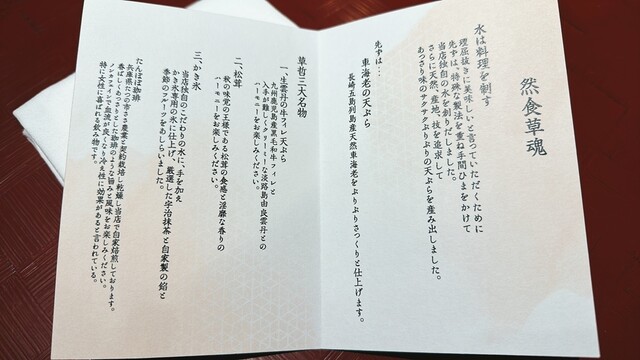 然食草魂
水は料理を制す
理屈抜きに美味しいと言っていただくために
先ずは、特殊な製法を重ね手間ひまをかけて
当店独自の水を創りだしました。
さらに天然、産地、技を追求して
あっさり味のサクサクぷりぷりの天ぷらを産み出しました。
先ずは…
車海老の天ぷら
長崎五島列島産天然車海老をぷりぷりさっくりと仕上げます。
草哲三大名物
一、生雲丹の牛フィレ天ぷら
九州鹿児島産黒毛和牛フィレと
入手が難しくクリーミーな淡路島由良雲丹との
ハーモニーをお楽しみください。
二、松茸
秋の味覚の王様である松茸の食感と淫靡な香りの
ハーモニーをお楽しみください。
三、かき氷
当店独自のこだわりの水に、手を加え
かき氷専用の氷に仕上げ、厳選した宇治抹茶と自家製の餡と
季節のフルーツをあしらいました。
たんぽぽ珈琲
兵庫県たつの市さき農業と契約栽培し乾燥し当店で自家焙煎しております。
香ばしくあっさりとした珈琲のような旨みと風味をお楽しみください。
ノンカフェインで血流が良くなり冷え性に効果があると言われている。
特に女性に喜ばれる飲み物です。